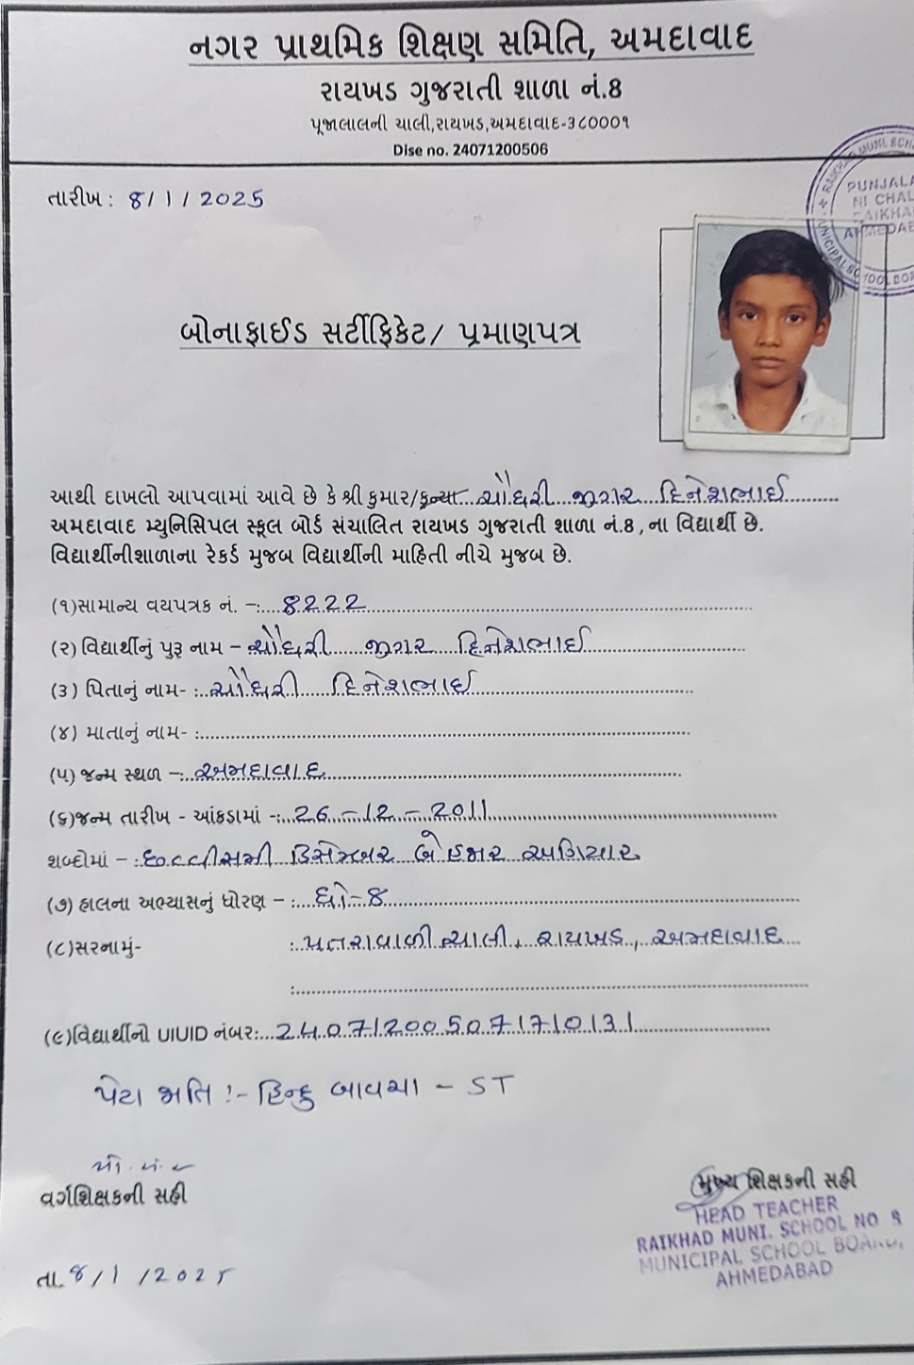 નગર પ્રાથમિક શિક્ષણ સમિતિ, અમદાવાદ
રાયખડ ગુજરાતી શાળા નં.8
પૂજાલાલની ચાલી,રાયખડ,અમદાવાદ-૩૮૦૦૦૧
Dise no. 24071200506
તારીખ : 8/1/2025
PUNJALA
NI CHAL
RAIKHA
AHMEDAB
બોનાફાઈડ સર્ટીફિકેટ/ પ્રમાણપત્ર
આથી દાખલો આપવામાં આવે છે કે શ્રી કુમાર/કન્યા ચૌધરી જીગર દિનેશભાઈ
અમદાવાદ મ્યુનિસિપલ સ્કૂલ બોર્ડ સંચાલિત રાયખડ ગુજરાતી શાળા નં.8, ના વિદ્યાર્થી છે.
વિદ્યાર્થીનીશાળાના રેકર્ડ મુજબ વિદ્યાર્થીની માહિતી નીચે મુજબ છે.
(૧)સામાન્ય વયપત્રક નં. -: 8222
(૨) વિદ્યાર્થીનું પુરૂ નામ - ચૌધરી જીગર દિનેશભાઈ
(૩) પિતાનું નામ- : ચૌધરી દિનેશભાઈ
(૪) માતાનું નામ- :
(૫) જન્મ સ્થળ -: અમદાવાદ
(૬)જન્મ તારીખ - આંકડામાં -: 26-12-2011
શબ્દોમાં - : છવ્વીસમી ડિસેમ્બર બે હજાર અગિયાર
(૭) હાલના અભ્યાસનું ધોરણ - : ધો-8
(૮)સરનામું- : પતરાવાળી ચાલી, રાયખડ, અમદાવાદ
(૯)વિદ્યાર્થીનો UIUID નંબર: 240712005071710131
પેટા જાતિ :- હિન્દુ બાવચા - ST
વર્ગશિક્ષકની સહી
મુખ્ય શિક્ષકની સહી
HEAD TEACHER
RAIKHAD MUNI. SCHOOL NO 8
MUNICIPAL SCHOOL BOARD,
AHMEDABAD
તા. 8/1/2025